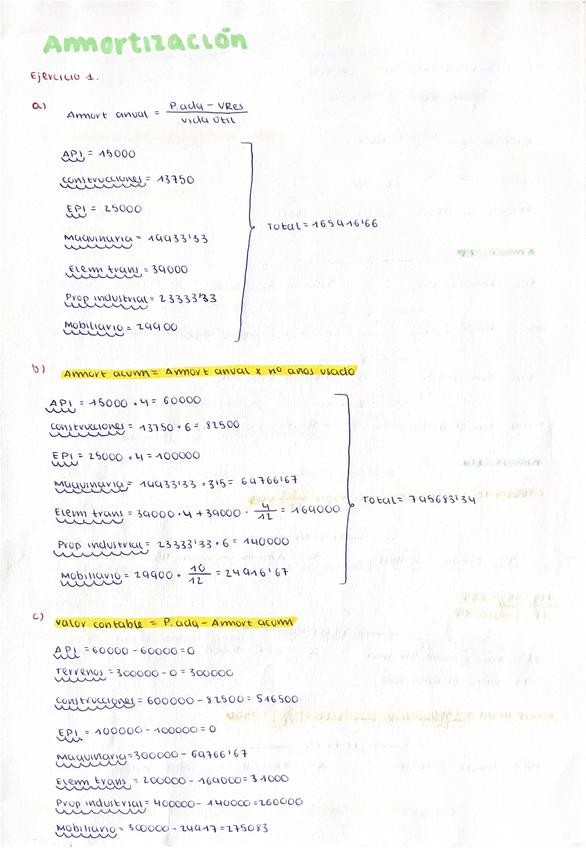 Amortización
Ejercicio 1.
a) Amort anual = P.adq - VRes / vida útil
API = 15000
construcciones = 13750
EPI = 25000
Maquinaria = 19933'33
Elem trans = 39000
Prop industrial = 23333'33
Mobiliario = 29900
Total = 165916'66
b) Amort acum = Amort anual x nº años usado
API = 15000 · 4 = 60000
construcciones = 13750 · 6 = 82500
EPI = 25000 · 4 = 100000
Maquinaria = 19933'33 · 3'5 = 69766'67
Elem trans = 39000 · 4 + 39000 · 4/12 = 169000
Prop industrial = 23333'33 · 6 = 140000
Mobiliario = 29900 · 10/12 = 24916'67
Total = 795683'34
c) valor contable = P.adq - Amort acum
API = 60000 - 60000 = 0
Terrenos = 300000 - 0 = 300000
construcciones = 600000 - 82500 = 516500
EPI = 100000 - 100000 = 0
Maquinaria = 300000 - 69766'67
Elem trans = 200000 - 169000 = 31000
Prop industrial = 400000 - 140000 = 260000
Mobiliario = 300000 - 24917 = 275083